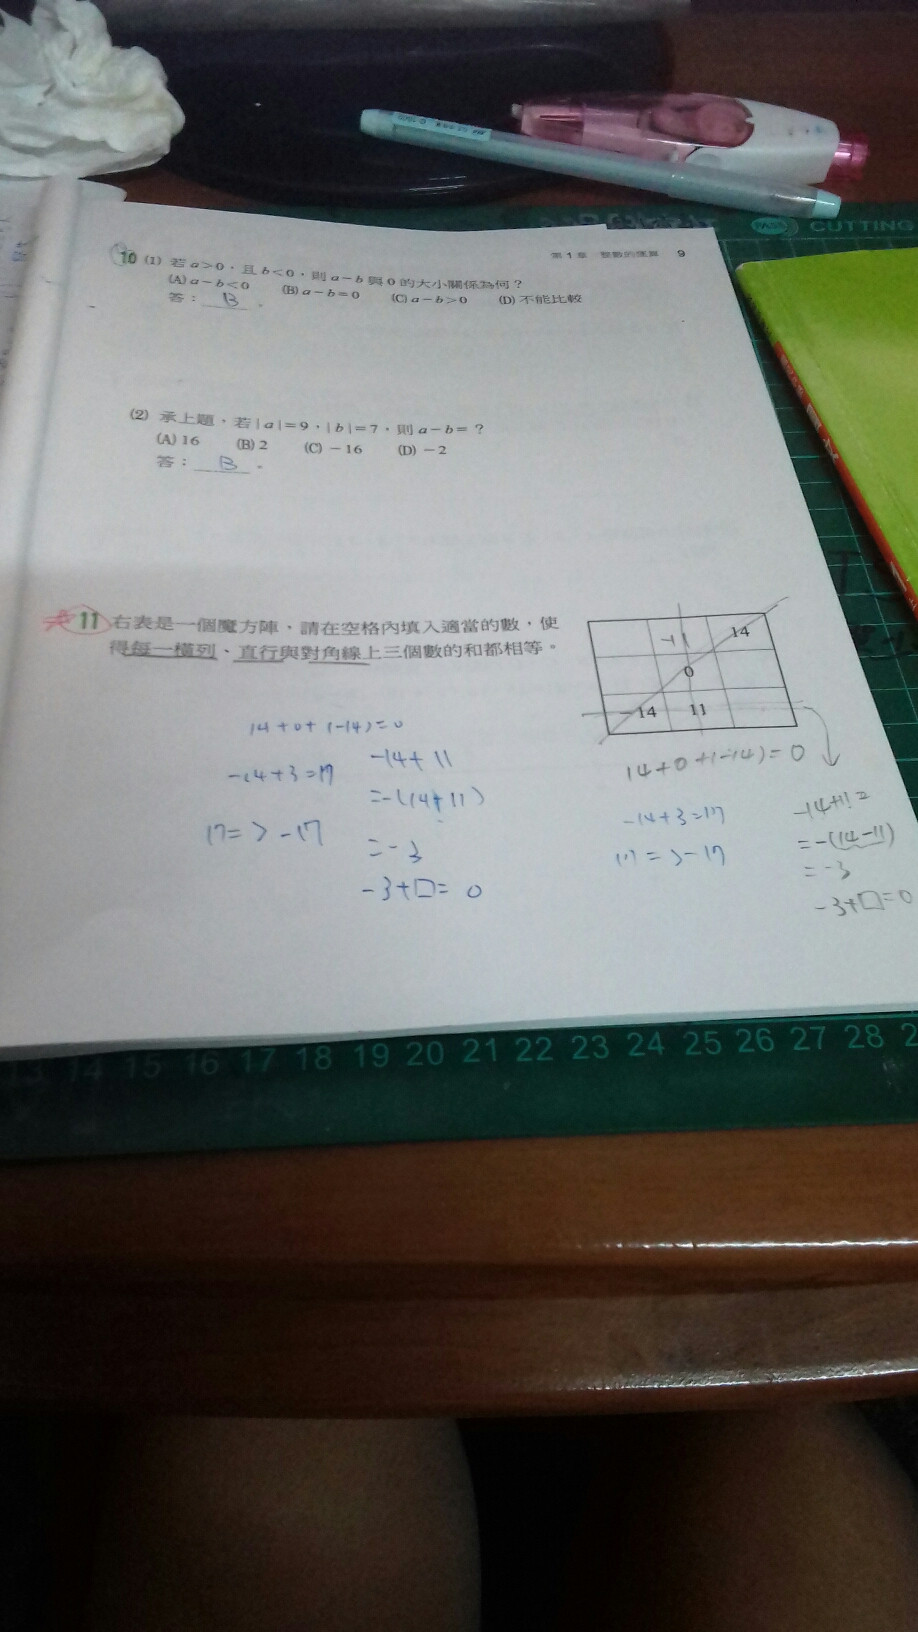 CUTTING
第1章 整數的運算 9
10 (1) 若 a>0,且 b<0,則 a-b 與 0 的大小關係為何?
(A) a-b<0 (B) a-b=0 (C) a-b>0 (D) 不能比較
答: B 。
(2) 承上題,若 |a|=9,|b|=7,則 a-b=?
(A) 16 (B) 2 (C) -16 (D) -2
答: B 。
11 右表是一個魔方陣、請在空格內填入適當的數,使
得每一橫列、直行與對角線上三個數的和都相等。
-11 14
0
-14 11
14+0+(-14)=0
-14+3=17
17=>-17
-14+11
=-(14+11)
=-3
-3+□=0
14+0+(-14)=0
-14+3=17
17=>-17
-14+11=
=-(14-11)
=-3
-3+□=0
13 14 15 16 17 18 19 20 21 22 23 24 25 26 27 28 2